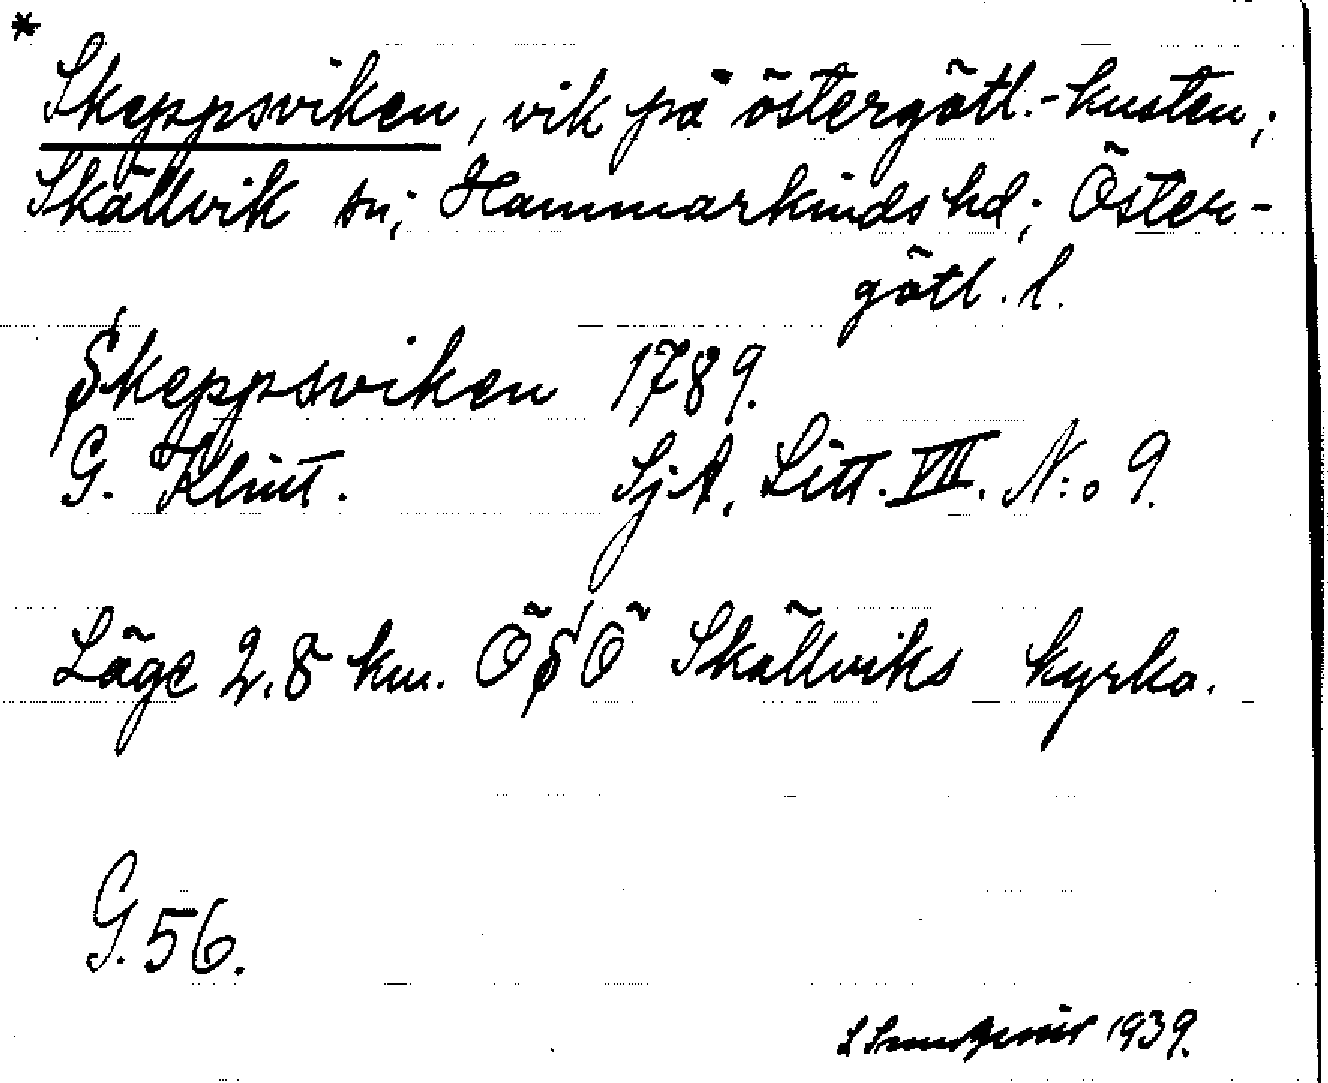 *
Skeppsviken, vik på östergötl.-kusten;
Skällvik sn; Hammarkinds hd; Öster-
götl. l.
Skeppsviken 1789.
G. Klint. SjA, Litt. VII. N:o 9.
Läge 2.8 km. ÖSÖ Skällviks kyrka.
G. 56.
1939.